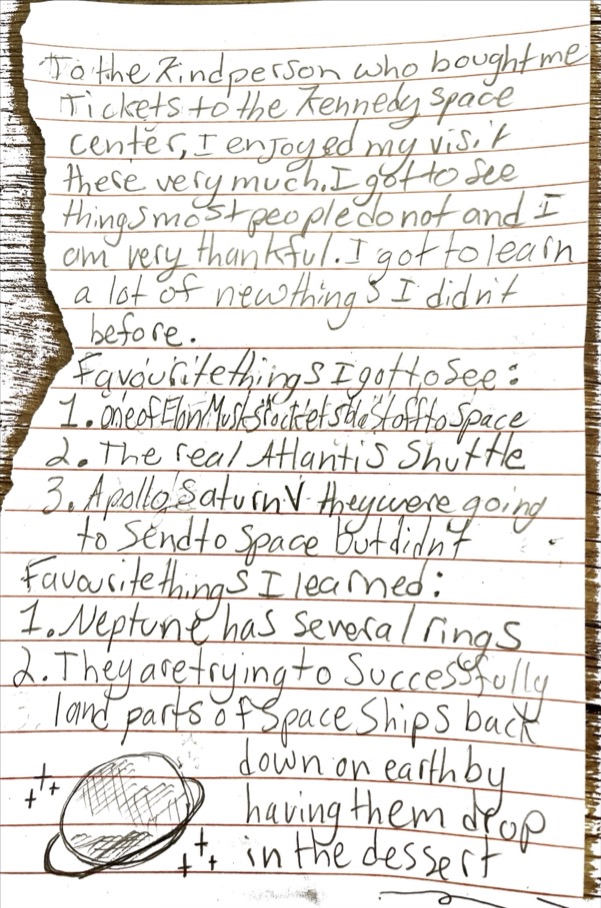 To the Kind person who bought me
Tickets to the Kennedy Space
center, I enjoyed my visit
there very much. I got to see
things most people do not and I
am very thankful. I got to learn
a lot of new things I didn't
before.
Favourite things I got to see:
1. one of Elon Musk's rockets blast off to space
2. The real Atlantis Shuttle
3. Apollo Saturn V they were going
to send to space but didn't
Favourite things I learned:
1. Neptune has several rings
2. They are trying to Successfully
land parts of Space Ships back
down on earth by
having them drop
in the dessert